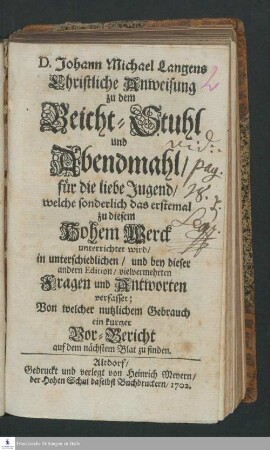 D. Johann Michael Langens
Christliche Anweisung
zu dem
Beicht-Stuhl
und
Abendmahl/
für die liebe Jugend/
welche sonderlich das erstemal
zu diesem
Hohem Werck
unterrichtet wird/
in unterschiedlichen / und bey dieser
andern Edition/ vielvermehrten
Fragen und Antworten
verfasset;
Von welcher nutzlichem Gebrauch
ein kurtzer
Vor-Bericht
auf dem nächstem Blat zu finden.
Altdorf/
Gedruckt und verlegt von Heinrich Meyern/
der Hohen Schul daselbst Buchdruckern, 1702.
2
vid.
pag.
Franckesche Stiftungen zu Halle